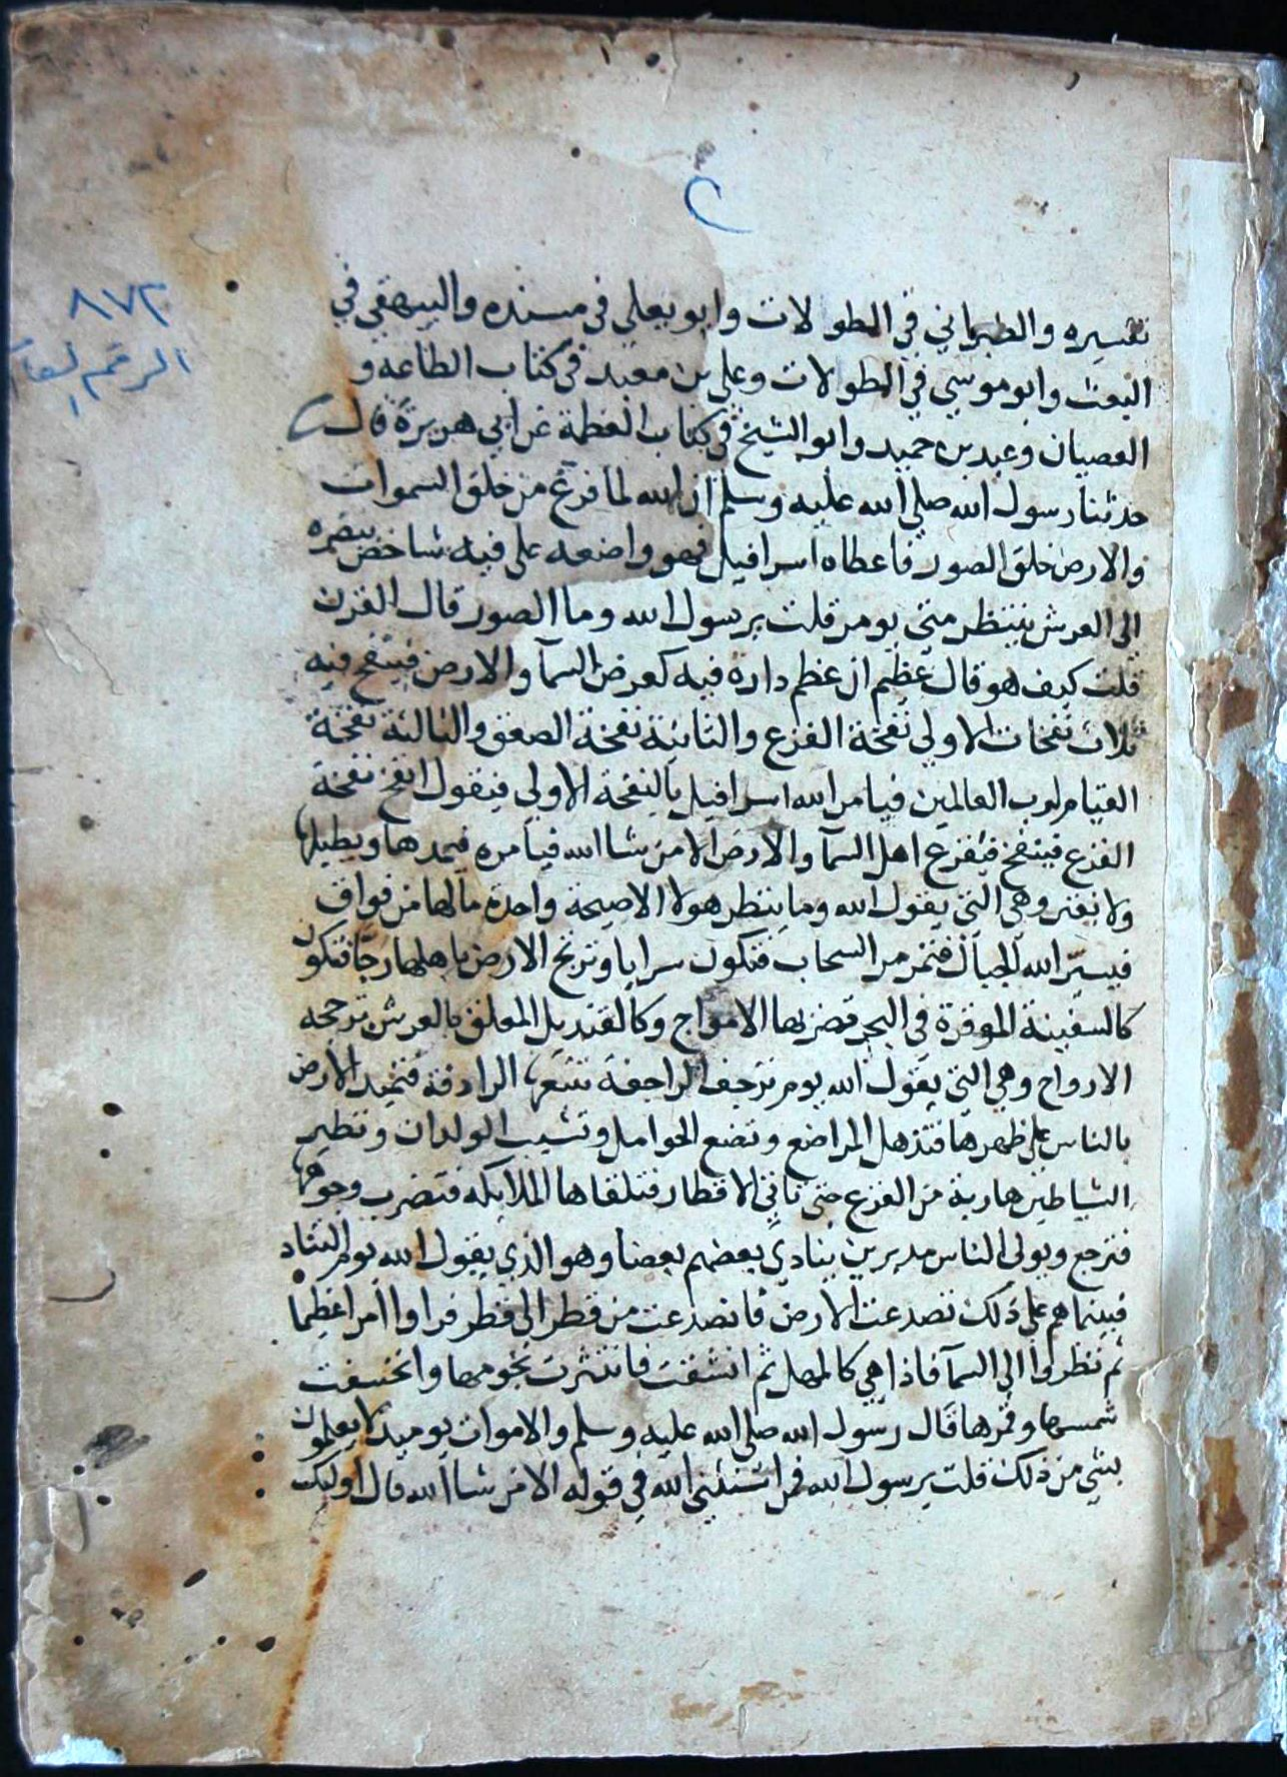 ٢
٨٧٢
الرقم العام
تفسيره والطبراني في الطولات وابو يعلي في مسنده والبيهقي في
البعث وابو موسي في الطولات وعلي بن معبد في كتاب الطاعه و
العصيان وعبد بن حميد وابو الشيخ في كتاب العظمة عن ابي هريرة قال
حدثنا رسول الله صلي الله عليه وسلم ان الله لما فرغ من خلق السموات
والارض خلق الصور فاعطاه اسرافيل فهو واضعه علي فيه شاخص ببصره
الي العرش ينتظر متي يومر قلت يرسول الله وما الصور قال القرن
قلت كيف هو قال عظيم ان عظم دارة فيه كعرض السمآ والارض فينفخ فيه
ثلاث نفخات الاولي نفخة الفزع والثانية نفخة الصعق والثالثة نفخة
القيام لرب العالمين فيامر الله اسرافيل بالنفخة الاولي فيقول انفخ نفخة
الفزع فينفخ فيفزع اهل السمآ والارض الا من شا الله فيامره فيمدها ويطيلها
ولا يفتر وهي التي يقول الله وما ينتظر هولا الا صيحة واحدة مالها من فواق
فيسير الله الجبال فتمر مر السحاب فتكون سرابا وترتج الارض باهلها رجا فتكون
كالسفينة الموقرة في البحر تضربها الامواج وكالقنديل المعلق بالعرش ترججه
الارواح وهي التي يقول الله يوم ترجف الراجفة تتبعها الرادفة فتميد الارض
بالناس علي ظهرها فتذهل المراضع وتضع الحوامل وتشيب الولدان وتطير
الشياطين هاربة من الفزع حتي تاتي الاقطار فتلقاها الملايكه فتضرب وجوهها
فترجع ويولي الناس مدبرين ينادي بعضهم بعضا وهو الذي يقول الله يوم التناد
فبينما هم علي ذلك تصدعت الارض فانصدعت من قطر الي قطر فراوا امرا عظيما
ثم نظروا الي السمآ فاذا هي كالمهل ثم انشقت فانتثرت نجومها وانخسفت
شمسها وقمرها قال رسول الله صلي الله عليه وسلم والاموات يوميذ لا يعلمون
بشي من ذلك قلت يرسول الله فمن استثني الله في قوله الا من شا الله قال اوليك